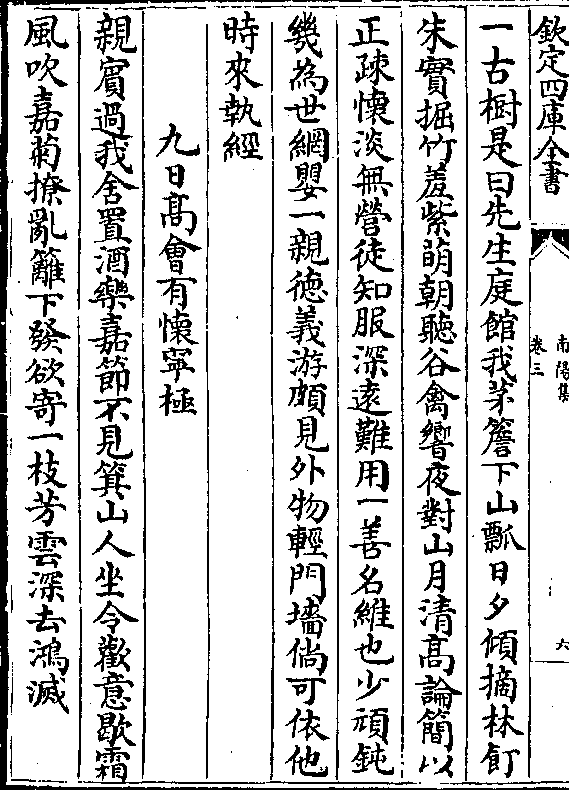 欽定四庫全書
南陽集
卷三
六
一古樹是曰先生庭館我茅簷下山瓢日夕傾摘林飣
朱實掘竹羞紫萌朝聽谷禽響夜對山月清高論簡以
正疎懷淡無營徒知服深遠難用一善名維也少頑鈍
幾為世網嬰一親德義游頗見外物輕門墻倘可依他
時來執經
九日髙會有懷寧極
親賓過我舍置酒樂嘉節不見箕山人坐令歡意歇霜
風吹嘉菊撩亂籬下發欲寄一枝芳雲深去鴻滅